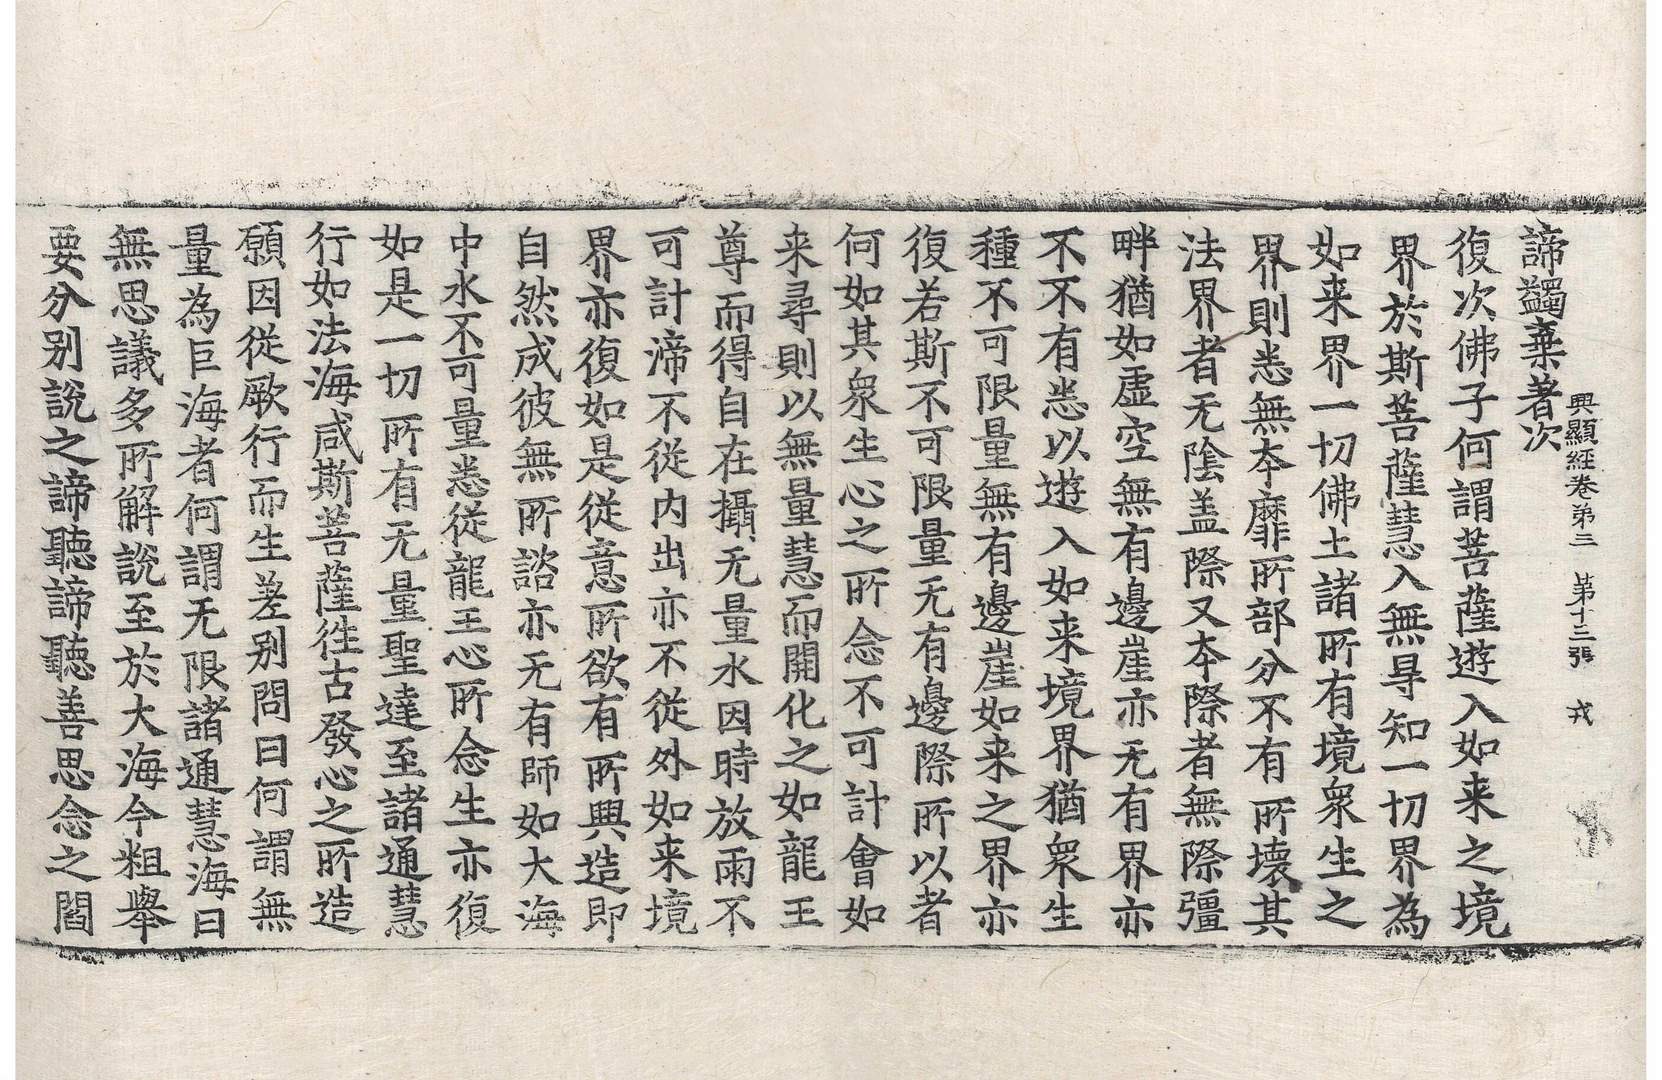 興顯經卷第三　第十三張　戎
諦蠲棄著次
復次佛子何謂菩薩遊入如来之境
界於斯菩薩慧入無㝵知一切界為
如来界一切佛土諸所有境衆生之
界則悉無夲靡所部分不有所壊其
法界者无陰盖際又夲際者無際彊
畔猶如虛空無有邊崖亦无有界亦
不不有悉以遊入如来境界猶衆生
種不可限量無有邊崖如来之界亦
復若斯不可限量无有邊際所以者
何如其衆生心之所念不可計會如
来尋則以無量慧而開化之如龍王
尊而得自在攝无量水因時放雨不
可計渧不從内出亦不從外如来境
界亦復如是從意所欲有所興造即
自然成彼無所諮亦无有師如大海
中水不可量悉從龍王心所念生亦復
如是一切所有无量聖達至諸通慧
行如法海咸斯菩薩徃古發心之所造
願因從厥行而生差别問曰何謂無
量為巨海者何謂无限諸通慧海曰
無思議多所解說至於大海今粗舉
要分别說之諦聽諦聽善思念之閻